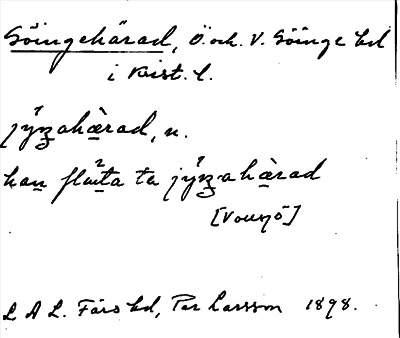 Göingehärad, Ö. och. V. Göinge hd
i Krist. l.
jýŋahæ̀rad, n.
han fløtta ta jýŋahæ̀rad
L A L. Färs hd, Per Larsson 1898.